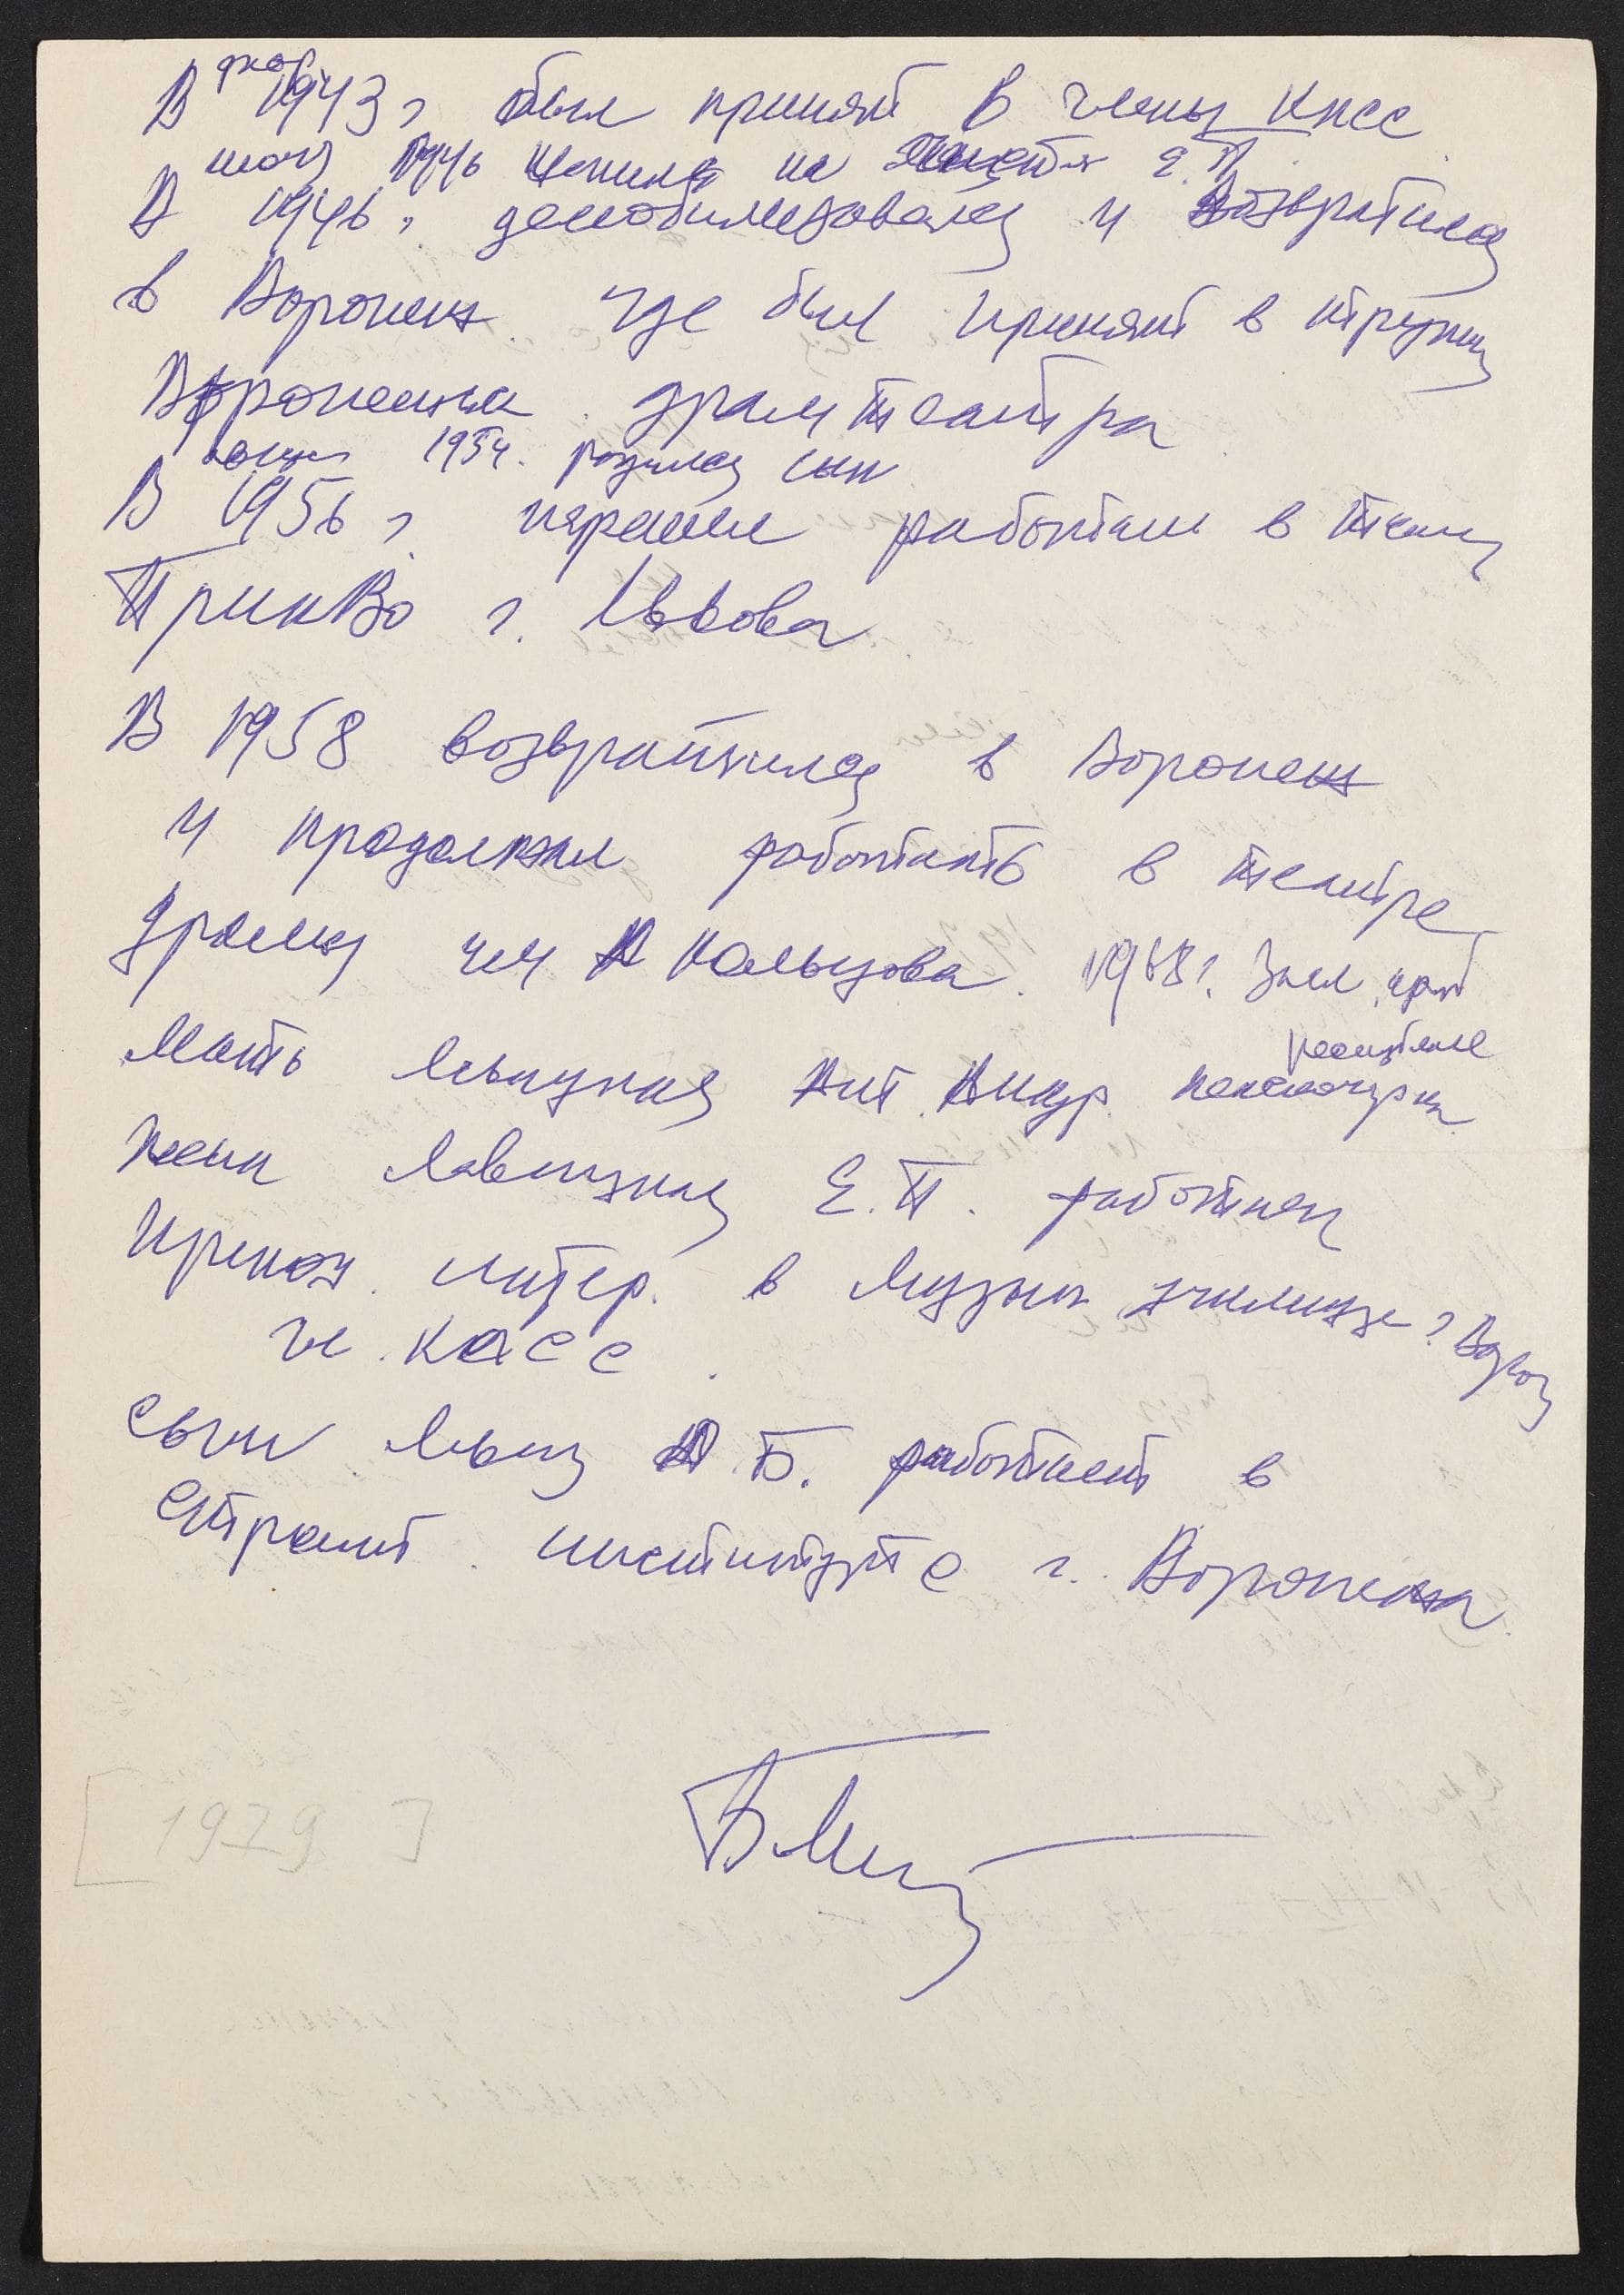 В 1943 г был принят в члены КПСС
1946 женился на Е.П.
В 1946 г. демобилизовался и возвратился
в Воронеж где был принят в труппу
Воронежск. драмтеатра
1954. родился сын
В 1956 г. перешел работать в театр
ПрикВо г. Львова
В 1958 возвратился в Воронеж
и продолжал работать в театре
драмы им А Кольцова. 1968 г. Засл. арт
республ
Мать Ант. Андр. пенсионерка
жена Е.П. работает
препод. литер. в музык училище г. Ворон
чл. КПСС.
сын А.Б. работает в
строит. институте г. Воронежа.
[1979]